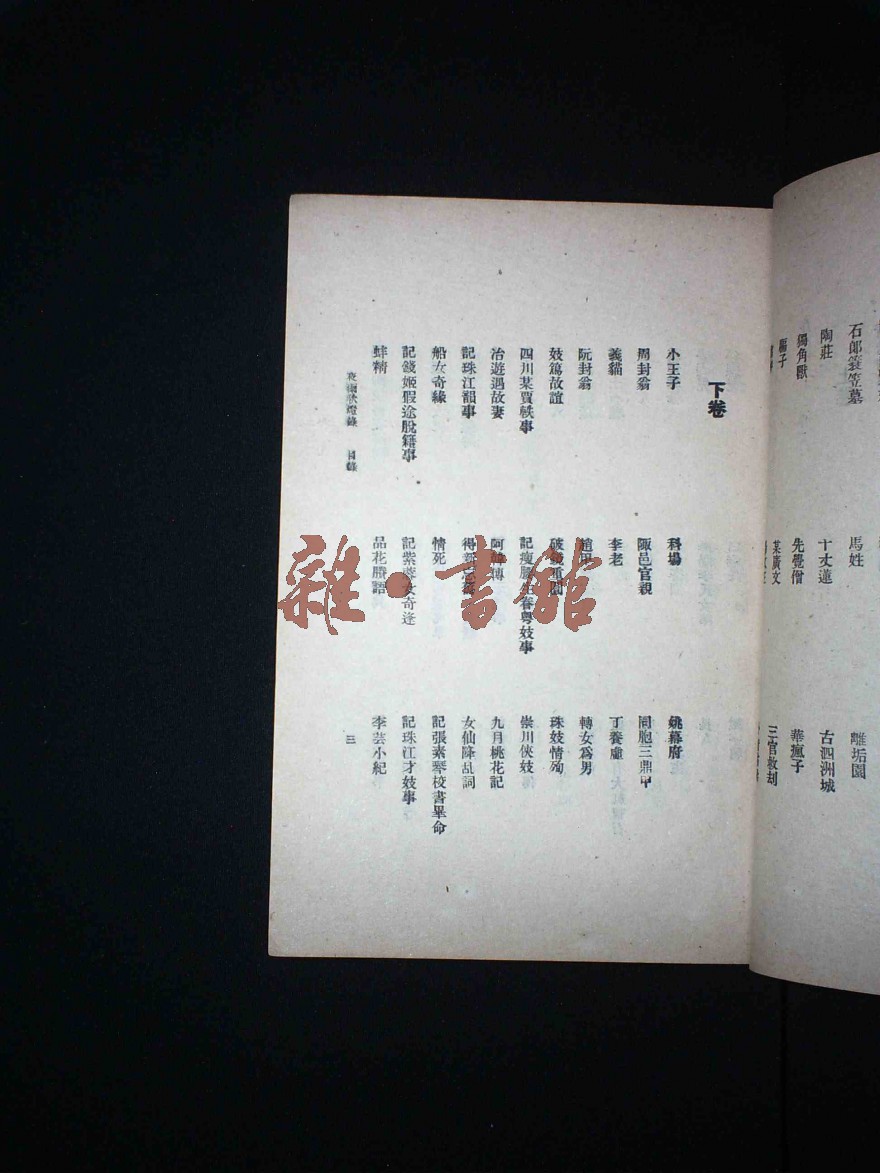 石郎蓑笠墓　馬姓　離垢園
陶莊　十丈蓮　古泗洲城
獨角獸　先覺僧　華瘋子
騙子　某廣文　三官救劫
下卷
小王子　科場　姚幕府
周封翁　陬邑官親　同胞三鼎甲
義貓　李老　丁養虛
阮封翁　趙甲　轉女爲男
妓篤故誼　破鏡重圓　珠妓情殉
四川某賈軼事　記瘦腰生眷粵妓事　崇川俠妓
冶遊遇故妻　九月桃花記
記珠江韻事　女仙降乩詞
船女奇緣　情死　記張素琴校書畢命
記錢姬假途脫籍事　記紫蓉女奇逢　記珠江才妓事
蚌精　品花贅語　李芸小紀
夜雨秋燈錄　目錄　三
雜·書館